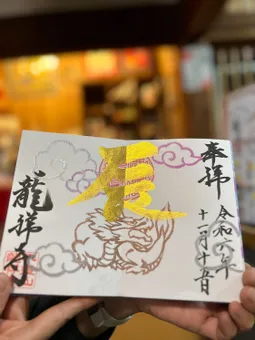 奉拝
令和六年
十一月十五日
龍祥寺